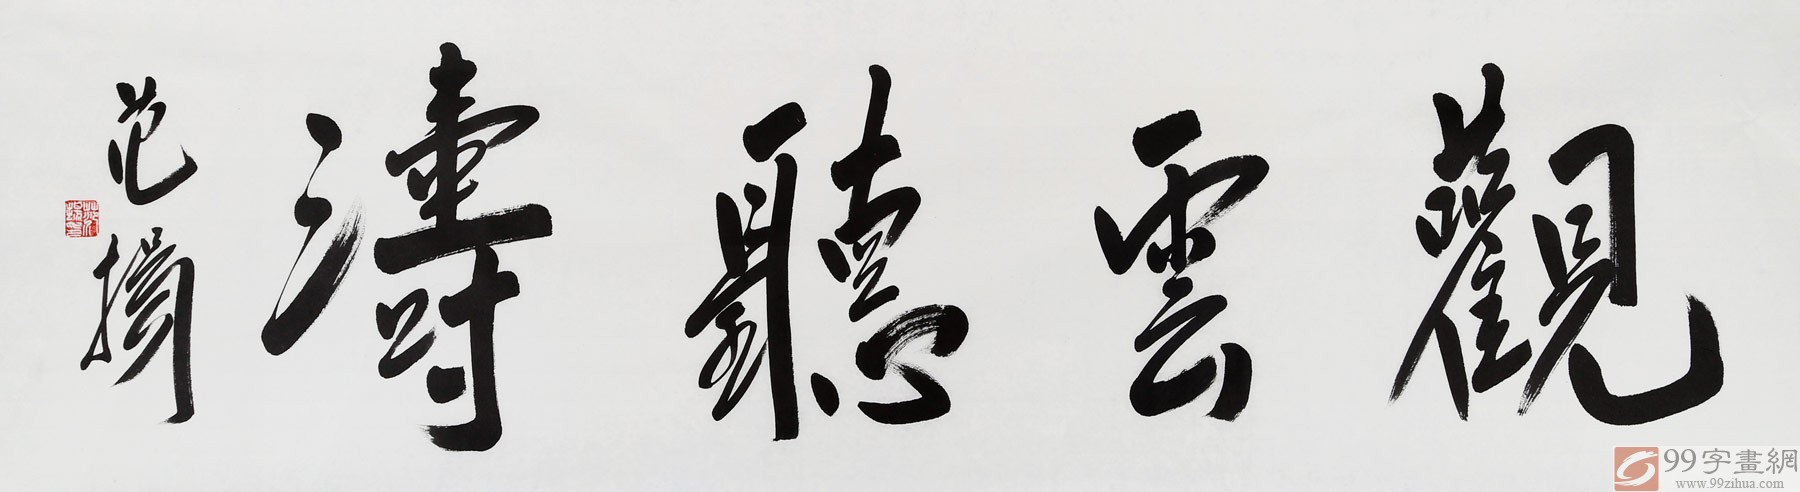 觀雲聽濤
范揚
99字畫網
www.99zihua.com